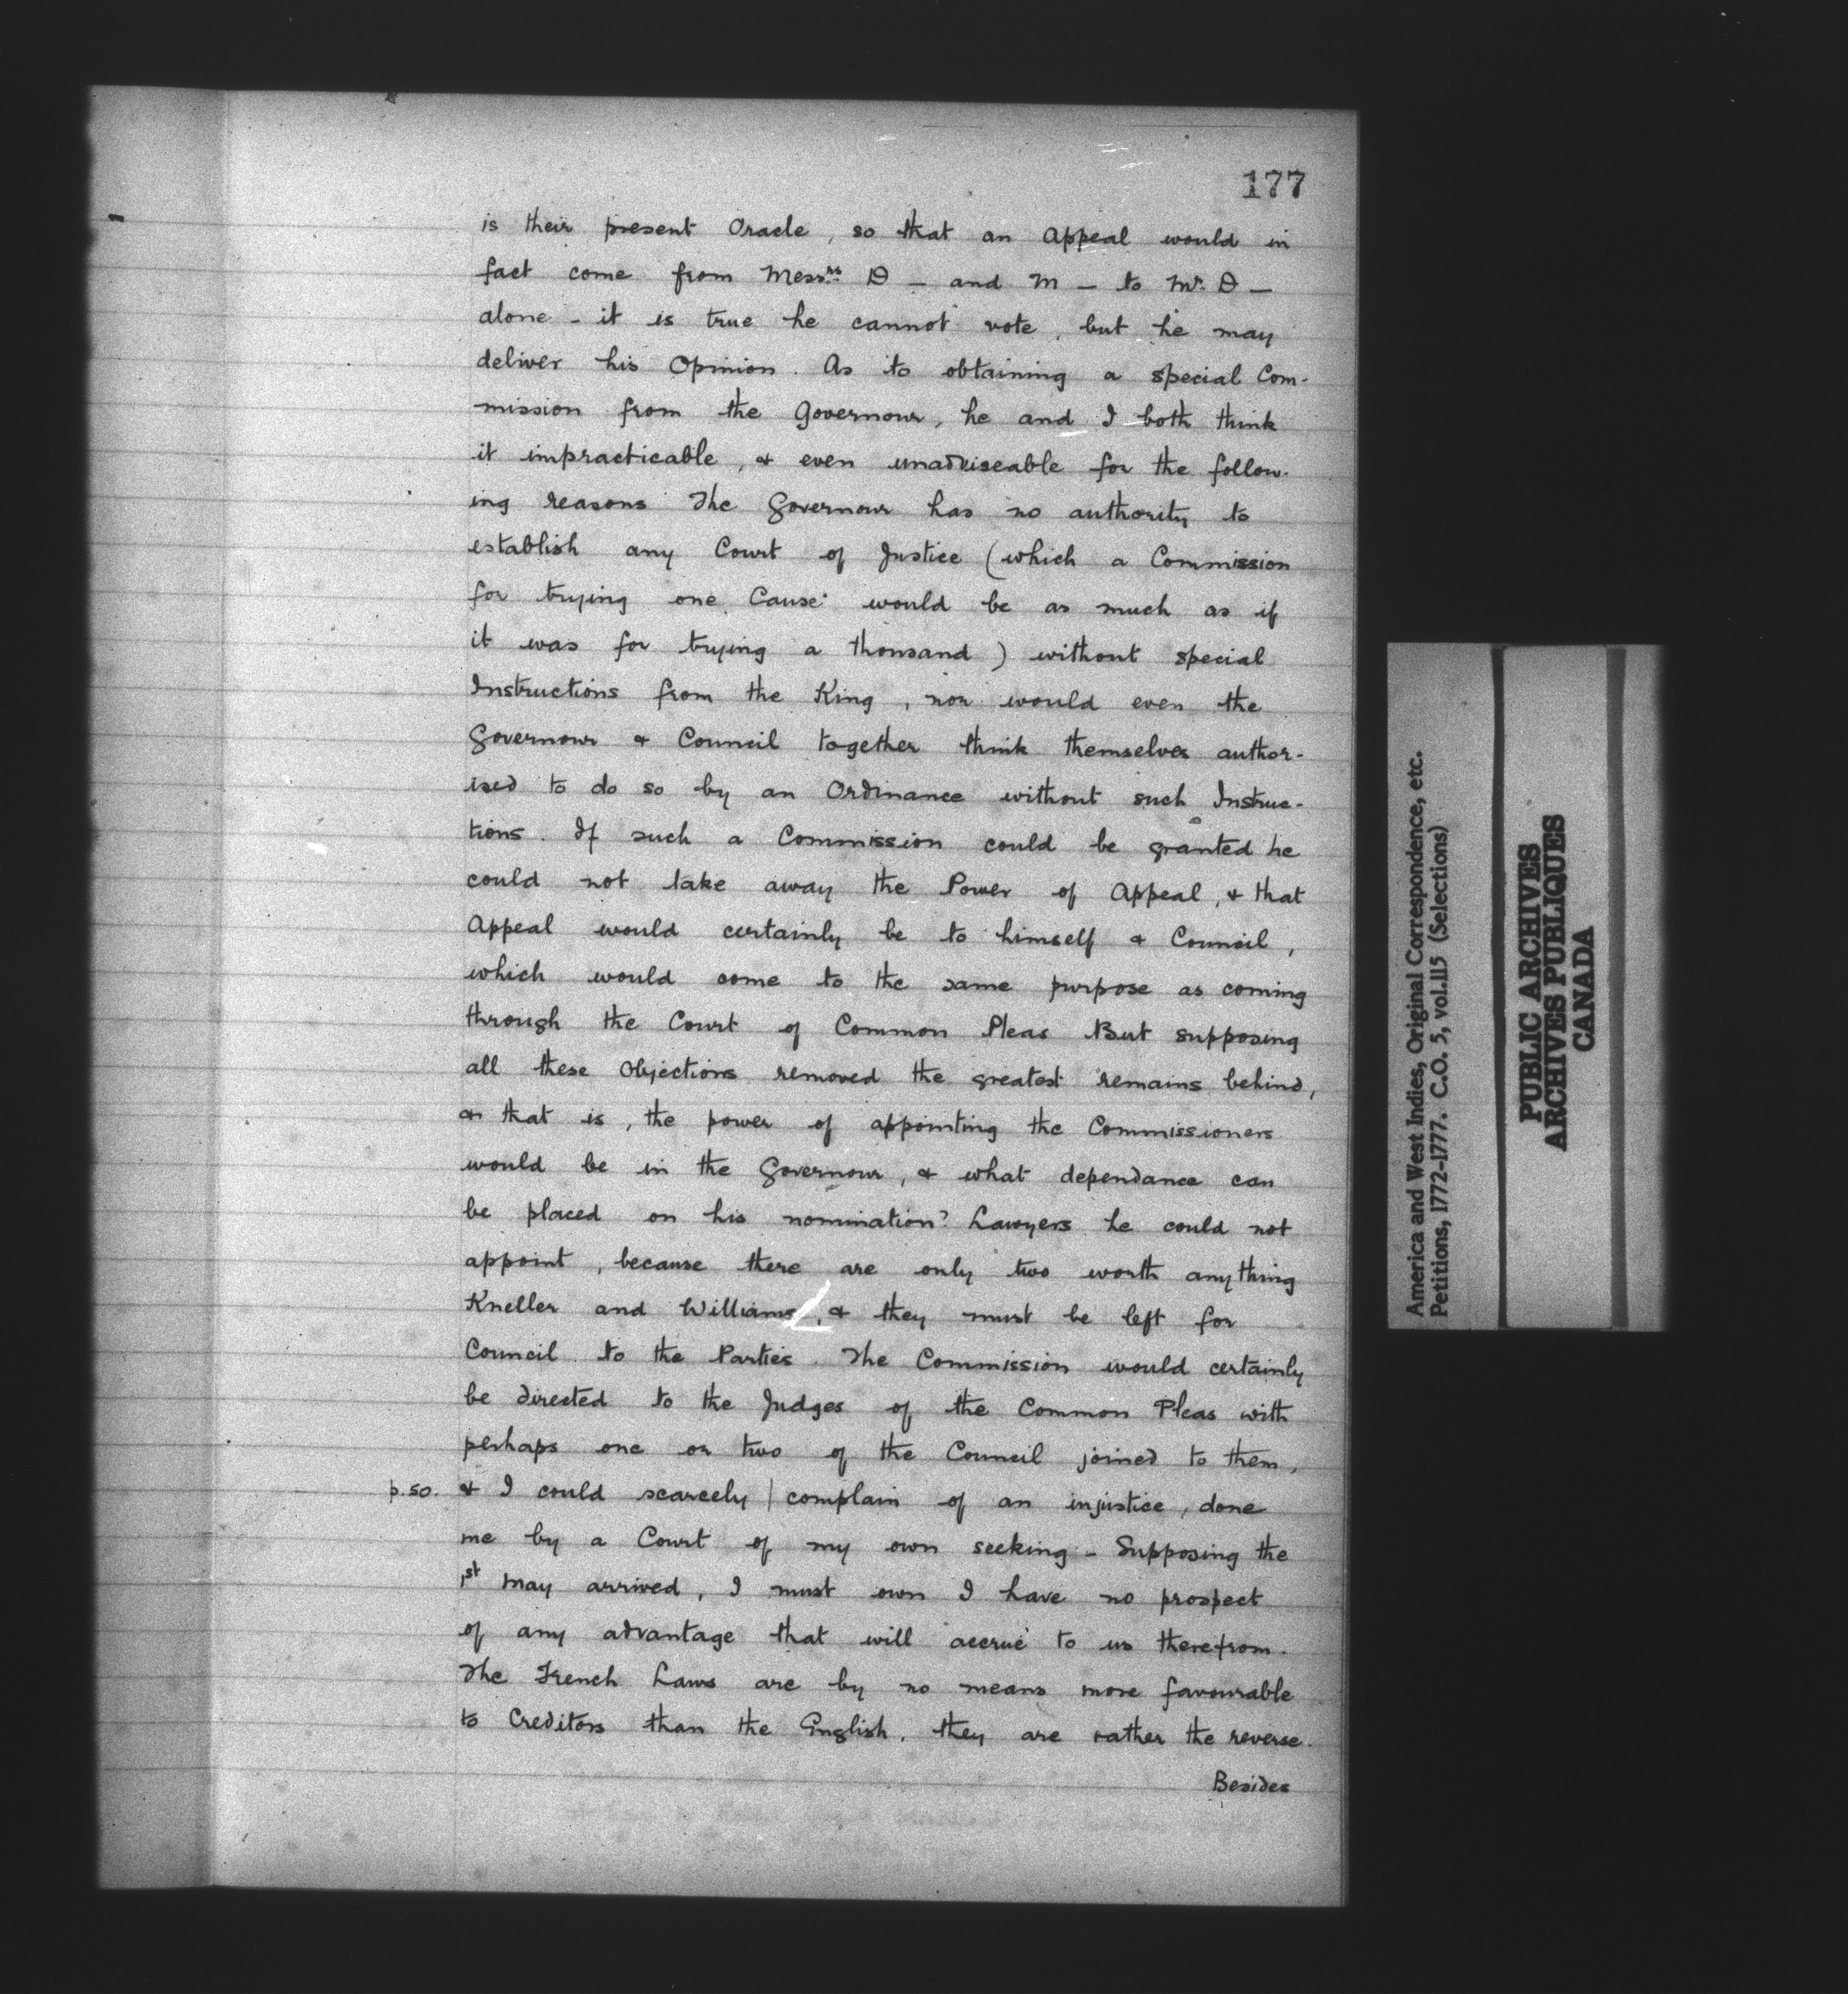 177
is their present Oracle, so that an Appeal would in
fact come from Messrs. D — and M — to Mr. D —
alone - it is true he cannot vote, but he may
deliver his Opinion. As to obtaining a special Com-
mission from the Governour, he and I both think
it impracticable, & even unadviseable for the follow-
ing reasons The Governour has no authority to
establish any Court of Justice (which a Commission
for trying one Cause would be as much as if
it was for trying a thousand) without special
Instructions from the King, nor would even the
Governour & Council together think themselves author-
ised to do so by an Ordinance without such Instruc-
tions. If such a Commission could be granted he
could not take away the Power of Appeal, & that
Appeal would certainly be to himself & Council,
which would come to the same purpose as coming
through the Court of Common Pleas But supposing
all these Objections removed the greatest remains behind,
& that is, the power of appointing the Commissioners
would be in the Governour, & what dependance can
be placed on his nomination? Lawyers he could not
appoint, because there are only two worth anything
Kneller and Williams, & they must be left for
Council to the Parties. The Commission would certainly
be directed to the Judges of the Common Pleas with
perhaps one or two of the Council joined to them,
p.50. & I could scarcely | complain of an injustice, done
me by a Court of my own seeking - Supposing the
1st May arrived, I must own I have no prospect
of any advantage that will accrue to us therefrom.
The French Laws are by no means more favourable
to Creditors than the English, they are rather the reverse.
Besides
America and West Indies, Original Correspondence, etc.
Petitions, 1772-1777. C.O. 5, vol.115 (Selections)
PUBLIC ARCHIVES
ARCHIVES PUBLIQUES
CANADA